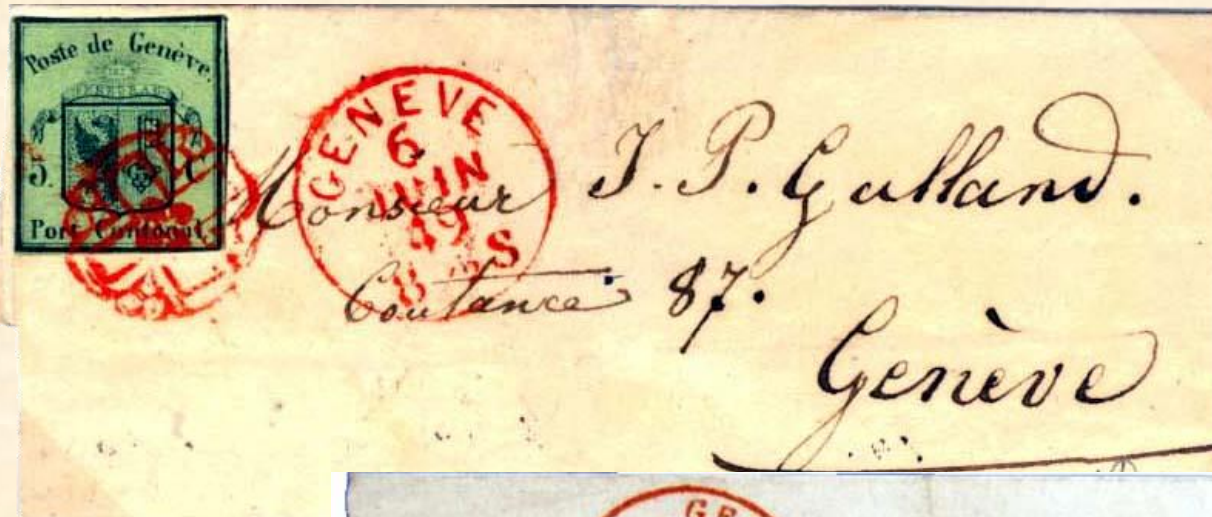 Poste de Genève.
POST TENEBRAS LUX
5. C.
Port Cantonal.
GENEVE
6
JUIN
49
8 S
Monsieur J. P. Galland.
Coutance 87.
Genève
GE